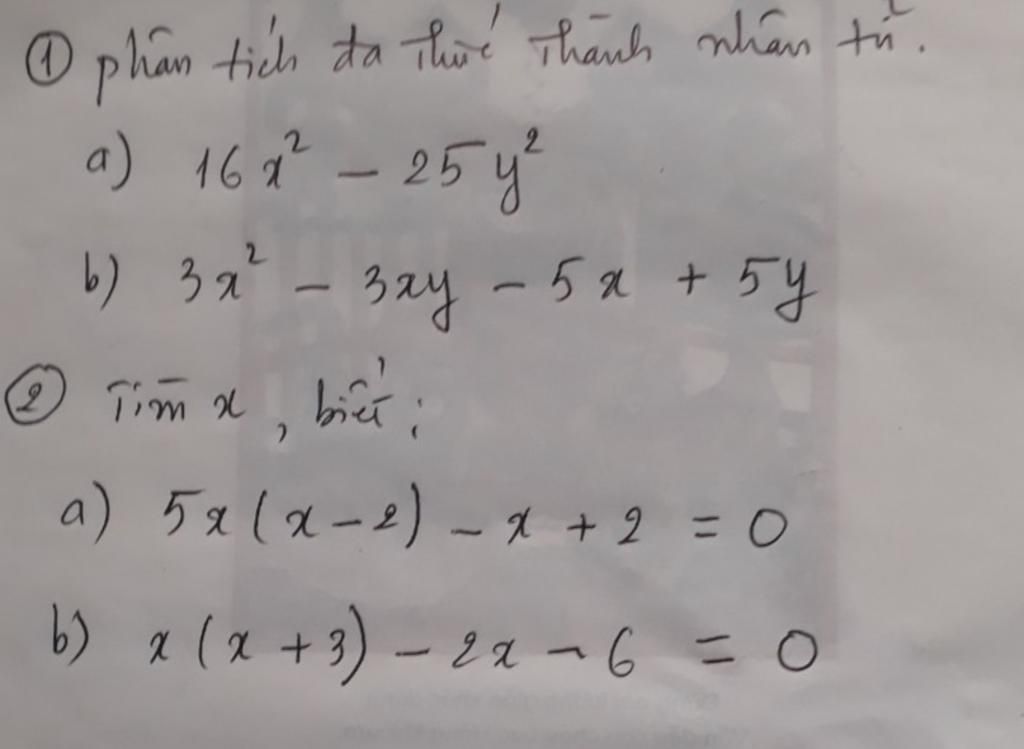 ① phân tích đa thức thành nhân tử.
a) 16x² - 25y²
b) 3x² - 3xy - 5x + 5y
② Tìm x, biết:
a) 5x(x-2) - x + 2 = 0
b) x(x+3) - 2x - 6 = 0